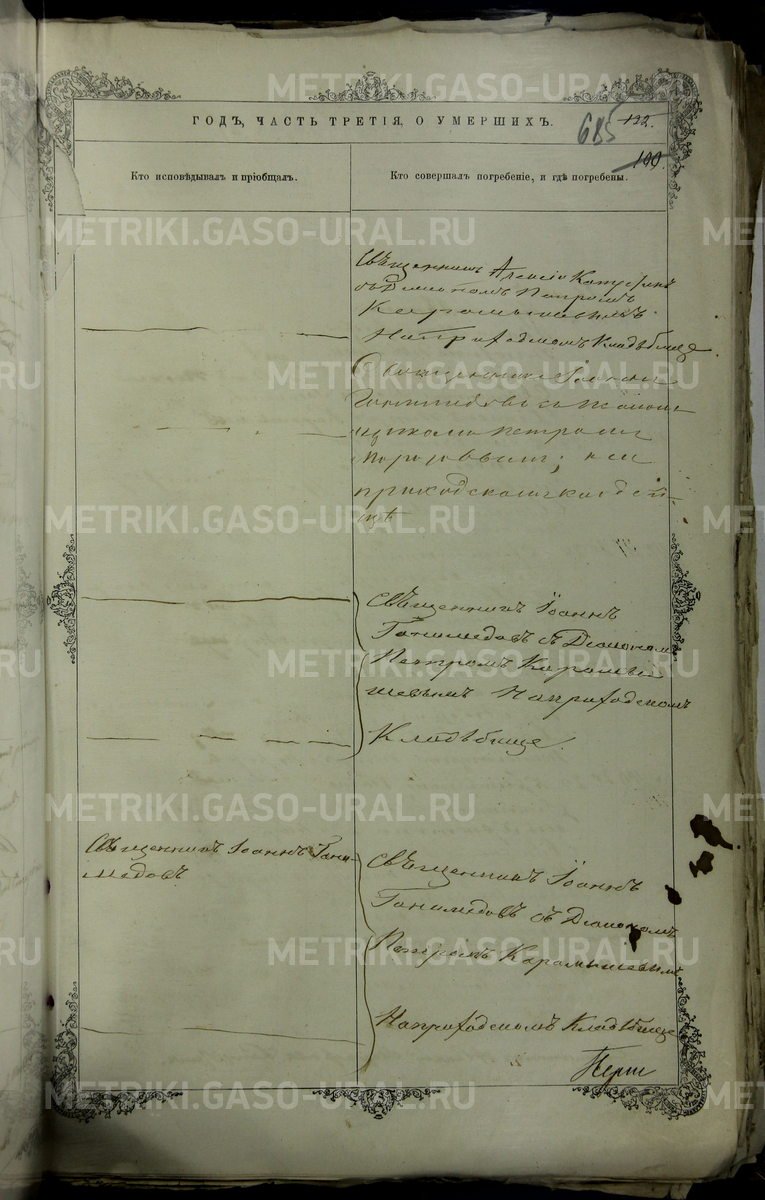 ГОДЪ, ЧАСТЬ ТРЕТІЯ, О УМЕРШИХЪ.
685
122.
100
Кто исповѣдывалъ и пріобщалъ.
Кто совершалъ погребеніе, и гдѣ погребены.
Священникъ Алексѣй
съ Діакономъ Петромъ
Карамышевымъ
На приходскомъ Кладбище
Священникъ Іоаннъ
Ганимедовъ с
Петромъ
на
приходскомъ кладби-
щѣ
Священникъ Іоаннъ
Ганимедовъ съ Діакономъ
Петромъ Карамы
шевымъ На приходскомъ
Кладбище.
Священникъ Іоаннъ Гани-
медовъ
Священникъ Іоаннъ
Ганимедовъ съ Діакономъ
Петромъ Карамышевымъ
На приходскомъ Кладбище
METRIKI.GASO-URAL.RU